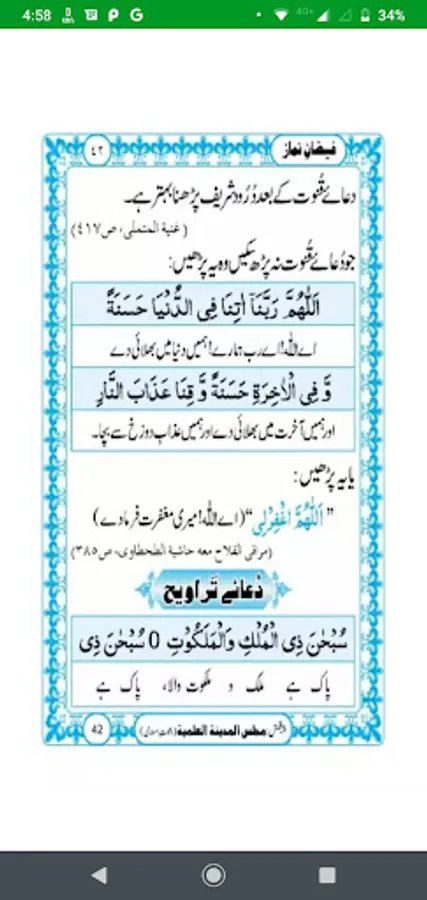 4:58
4G+
34%
٤٢
فیضانِ نماز
دعائے قُنوت کے بعد دُرُود شریف پڑھنا بہتر ہے۔
(غنیة المتملی، ص٤١٧)
جو دُعائے قُنوت نہ پڑھ سکیں وہ یہ پڑھیں:
اَللّٰهُمَّ رَبَّنَاۤ اٰتِنَا فِی الدُّنْیَا حَسَنَةً
اے اللہ! اے رب ہمارے! ہمیں دنیا میں بھلائی دے
وَّ فِی الْاٰخِرَةِ حَسَنَةً وَّ قِنَا عَذَابَ النَّارِ
اور ہمیں آخرت میں بھلائی دے اور ہمیں عذابِ دوزخ سے بچا۔
یا یہ پڑھیں:
"اَللّٰهُمَّ اغْفِرْلِی" (اے اللہ! میری مغفرت فرما دے)
(مراقی الفلاح معه حاشیة الطحطاوی، ص٣٨٥)
دُعائے تَراویح
سُبْحٰنَ ذِی الْمُلْكِ وَالْمَلَكُوْتِ 0 سُبْحٰنَ ذِی
پاک ہے ملک و ملکوت والا، پاک ہے
42
مجلس المدینة العلمیة (دعوتِ اسلامی)